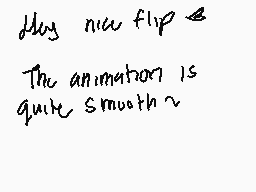 Hey nice flip
The animation is
quite smooth ~